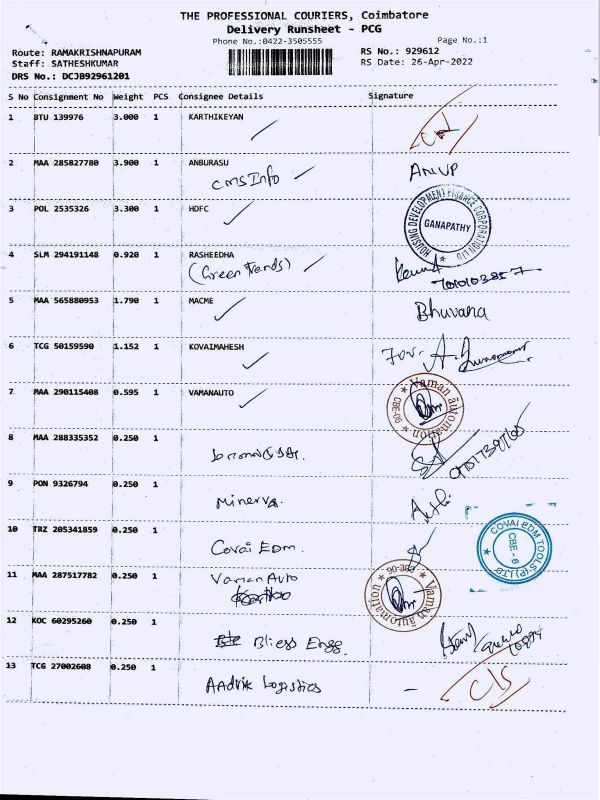 THE PROFESSIONAL COURIERS, Coimbatore
Delivery Runsheet - PCG
Phone No.:0422-3505555
Page No.:1
Route: RAMAKRISHNAPURAM
RS No.: 929612
Staff: SATHESHKUMAR
RS Date: 26-Apr-2022
DRS No.: DCJB92961201
S No Consignment No Weight PCS Consignee Details Signature
1 BTU 139976 3.000 1 KARTHIKEYAN
2 MAA 285827780 3.900 1 ANBURASU
CMS Info ANUP
3 POL 2535326 3.300 1 HDFC
HOUSING DEVELOPMENT FINANCE CORPORATION LTD
GANAPATHY
4 SLM 294191148 0.920 1 RASHEEDHA
(Green Trends)
5 MAA 565880953 1.790 1 MACME Bhuvana
6 TCG 50159590 1.152 1 KOVAIMAHESH For
7 MAA 290115408 0.595 1 VAMANAUTO
Vaman automation CBE-09
8 MAA 288335352 0.250 1
9 PON 9326794 0.250 1
Minerva.
10 TRZ 205341859 0.250 1
Covai EDM.
COVAI EDM TOOLS (P) LTD
CBE - 6
11 MAA 287517782 0.250 1 Vaman Auto
Vaman automation
12 KOC 60295260 0.250 1
Bliess Engg.
13 TCG 27002608 0.250 1
Aadvik Logistics -